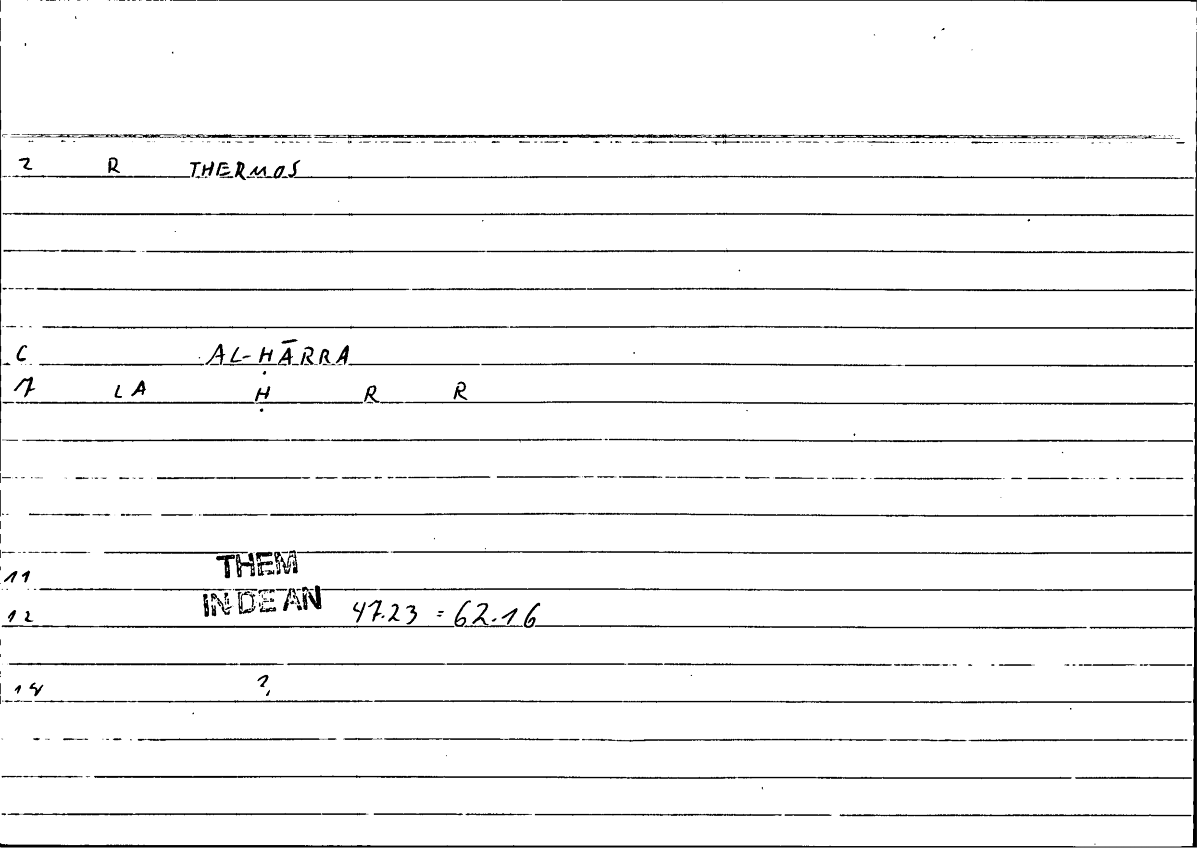 2 R THERMOS
6 AL-ḤĀRRA
7 LA Ḥ R R
11 THEM
12 IN DE AN 47.23 = 62.16
14 ?